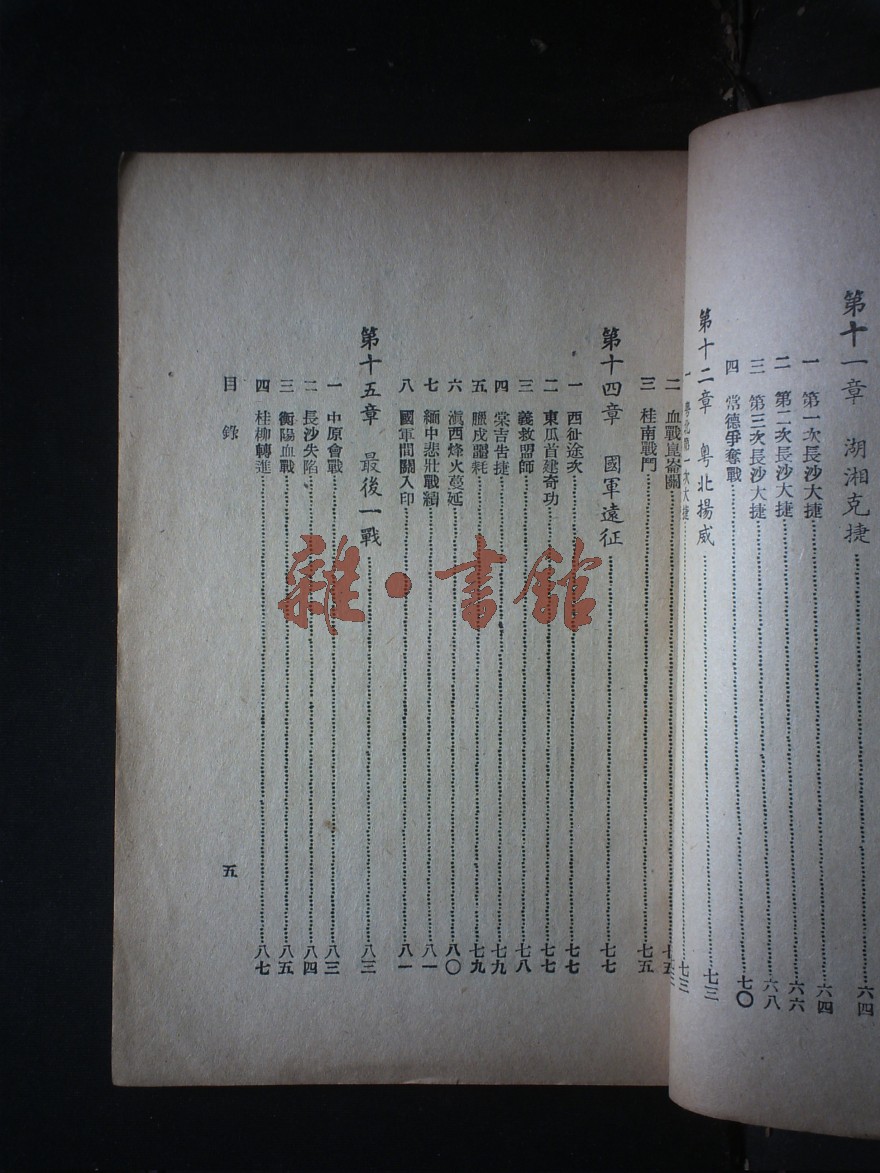 第十一章　湖湘克捷……六四
一　第一次長沙大捷……六四
二　第二次長沙大捷……六六
三　第三次長沙大捷……六八
四　常德爭奪戰……七〇
第十二章　粵北揚威……七三
一　粵北第一次大捷……七三
二　血戰崑崙關……七五
三　桂南戰鬥……七五
第十四章　國軍遠征……七七
一　西征途次……七七
二　東瓜首建奇功……七七
三　義救盟師……七八
四　棠吉告捷……七九
五　臘戍噩耗……七九
六　滇西烽火蔓延……八〇
七　緬中悲壯戰績……八一
八　國軍間關入印……八一
第十五章　最後一戰……八三
一　中原會戰……八三
二　長沙失陷……八四
三　衡陽血戰……八五
四　桂柳轉進……八七
目錄
五
雜·書館